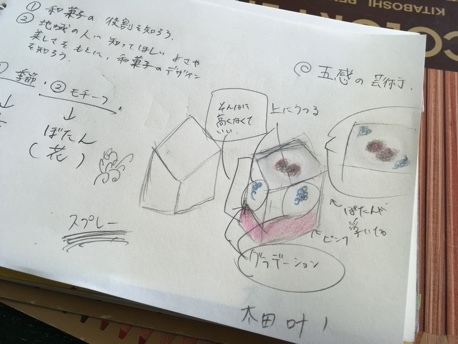 ① 和菓子の役割を知ろう。
② 地域の人に知ってほしいよさや
美しさをもとに、和菓子のデザイン
を知ろう。
② モチーフ
↓
ぼたん
(花)
スプレー
◎ 五感の芸術
そんなに
高くなくて
いい
上にうつる
ぼたんが
浮いてる
ピンク
グラデーション
COLOR
KITABOSHI PE